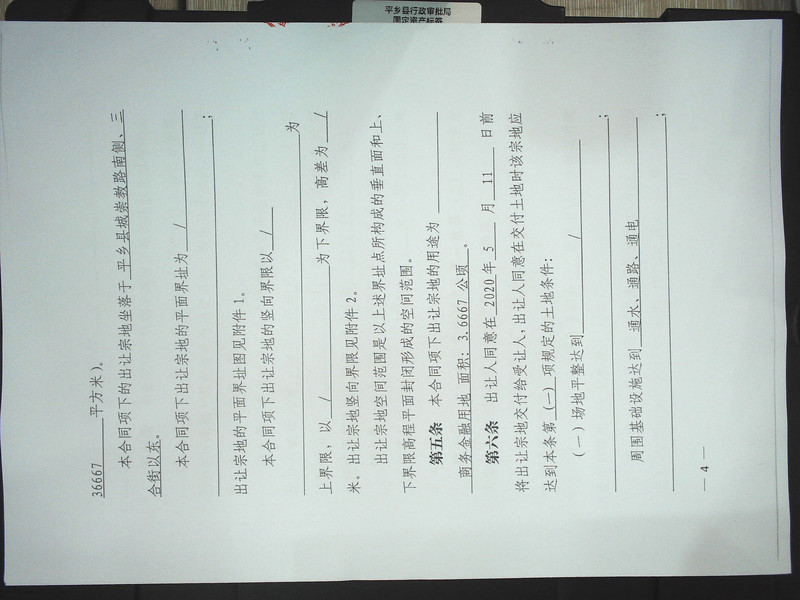 36667 平方米)。
本合同项下的出让宗地坐落于 平乡县城崇教路南侧、三
合街以东。
本合同项下出让宗地的平面界址为 /
;
出让宗地的平面界址图见附件 1。
本合同项下出让宗地的竖向界限以 /
为
上界限，以 / 为下界限，高差为 /
米。出让宗地竖向界限见附件 2。
出让宗地空间范围是以上述界址点所构成的垂直面和上、
下界限高程平面封闭形成的空间范围。
第五条 本合同项下出让宗地的用途为
商务金融用地 面积: 3.6667 公顷 。
第六条 出让人同意在 2020 年 5 月 11 日前
将出让宗地交付给受让人,出让人同意在交付土地时该宗地应
达到本条第 (一) 项规定的土地条件:
(一) 场地平整达到 /
;
周围基础设施达到 通水、通路、通电
;
— 4 —
平乡县行政审批局